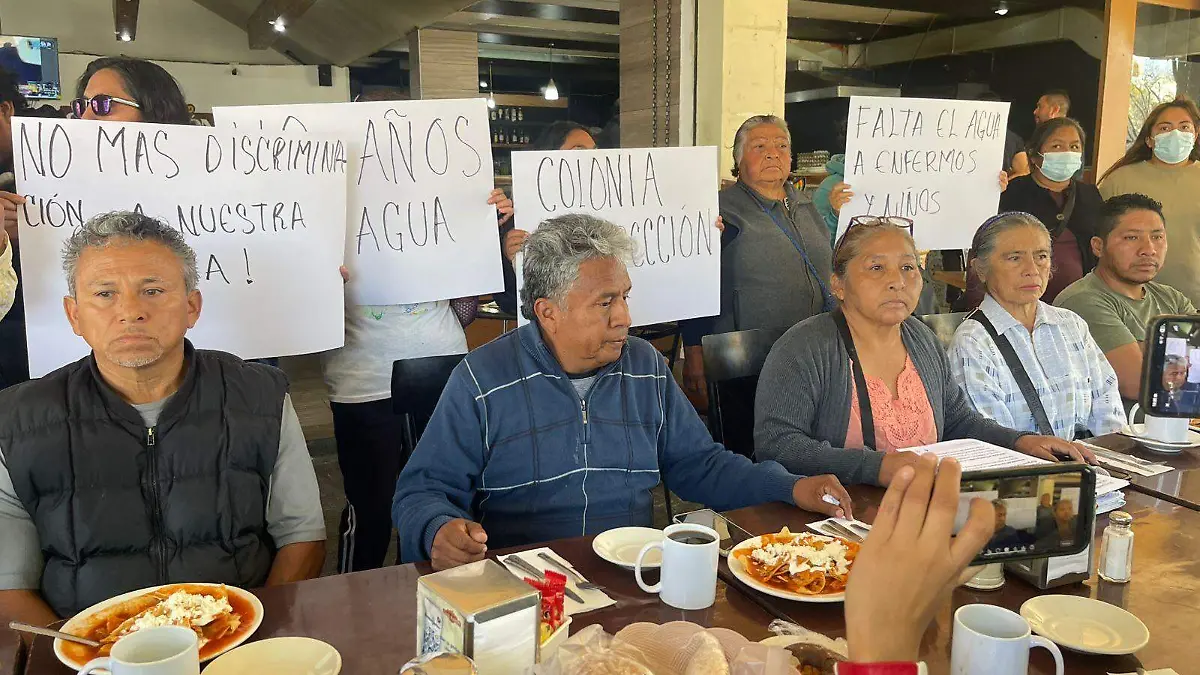 NO MAS DISCRIMINA
CIÓN A NUESTRA
!
AÑOS
AGUA
COLONIA
FALTA EL AGUA
A ENFERMOS
Y NIÑOS